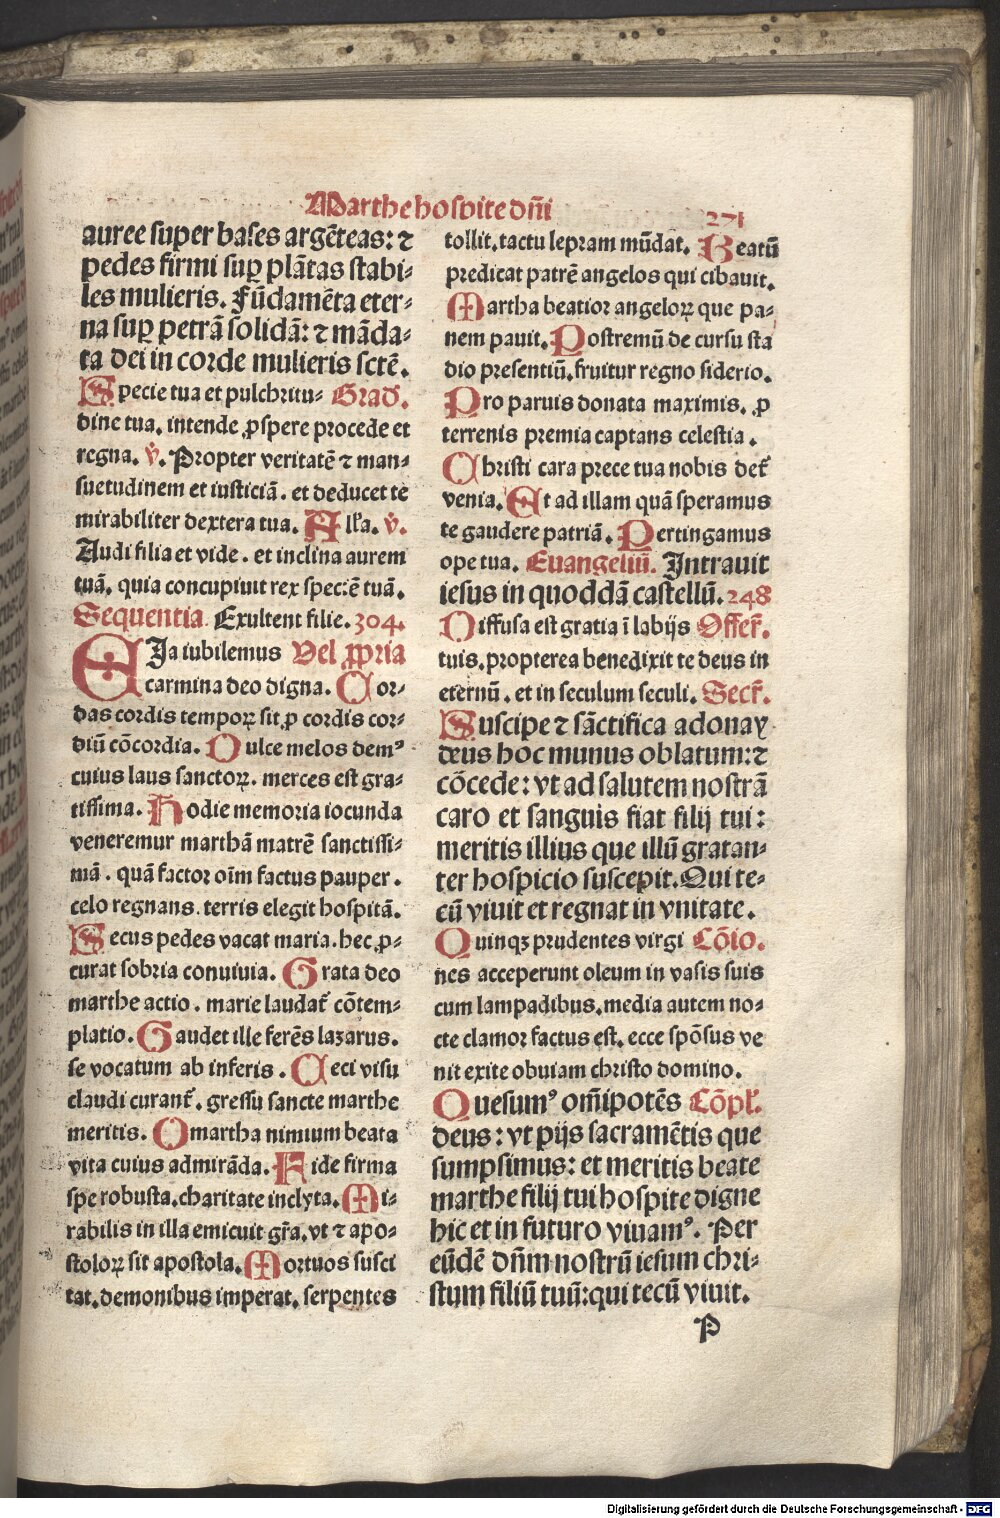 Marthe hospite dñi
271
auree super bases argẽteas: ⁊
pedes firmi suꝑ plãtas stabi-
les mulieris. Fũdamẽta eter-
na suꝑ petrã solidã: ⁊ mãda-
ta dei in corde mulieris sctẽ.
Specie tua et pulchritu- Grad̃.
dine tua. intende ꝓspere procede et
regna. v̉. Propter veritatẽ ⁊ man-
suetudinem et iusticiã. et deducet te
mirabiliter dextera tua. Alła. v̉.
Audi filia et vide. et inclina aurem
tuã. quia concupiuit rex speciẽ tuã.
Sequentia. Exultent filie. 304.
EIa iubilemus Vel ꝓpria
carmina deo digna. Cor-
das cordis temporꝝ sit ꝑ cordis cor-
diũ cõcordia. Dulce melos demꝰ
cuius laus sanctorꝝ. merces est gra-
tissima. Hodie memoria iocunda
veneremur marthã matrẽ sanctissi-
mã. quã factor oĩm factus pauper.
celo regnans. terris elegit hospitã.
Secus pedes vacat maria. hec ꝓ-
curat sobria conuiuia. Grata deo
marthe actio. marie laudat̃ cõtem-
platio. Gaudet ille ferẽs lazarus.
se vocatum ab inferis. Ceci visu
claudi curant̃. gressu sancte marthe
meritis. O martha nimium beata
vita cuius admirãda. Fide firma
spe robusta. charitate inclyta. Mi-
rabilis in illa emicuit gr̃a. vt ⁊ apo-
stolorꝝ sit apostola. Mortuos susci
tat. demonibus imperat. serpentes
tollit. tactu lepram mũdat. Beatũ
predicat patrẽ angelos qui cibauit.
Martha beatior angelorꝝ que pa-
nem pauit. Postremũ de cursu sta
dio presentiũ. fruitur regno siderio.
Pro paruis donata maximis. ꝓ
terrenis premia captans celestia.
Christi cara prece tua nobis det̃
venia. Et ad illam quã speramus
te gaudere patriã. Pertingamus
ope tua. Euangeliũ. Intrauit
iesus in quoddã castellũ. 248
Diffusa est gratia ĩ labijs Offer̃.
tuis. propterea benedixit te deus in
eternũ. et in seculum seculi. Secr̃.
Suscipe ⁊ sãctifica adonay
deus hoc munus oblatum: ⁊
cõcede: vt ad salutem nostrã
caro et sanguis fiat filij tui:
meritis illius que illũ gratan-
ter hospicio suscepit. Qui te-
cũ viuit et regnat in vnitate.
Quinqꝫ prudentes virgi Cõio.
nes acceperunt oleum in vasis suis
cum lampadibus. media autem no-
cte clamor factus est. ecce spõsus ve
nit exite obuiam christo domino.
Quesumꝰ om̃ipotẽs Cõpł.
deus: vt pijs sacramẽtis que
sumpsimus: et meritis beate
marthe filij tui hospite digne
hic et in futuro viuamꝰ. Per
eũdẽ dñm nostrũ iesum chri-
stum filiũ tuũ: qui tecũ viuit.
P
Digitalisierung gefördert durch die Deutsche Forschungsgemeinschaft - DFG